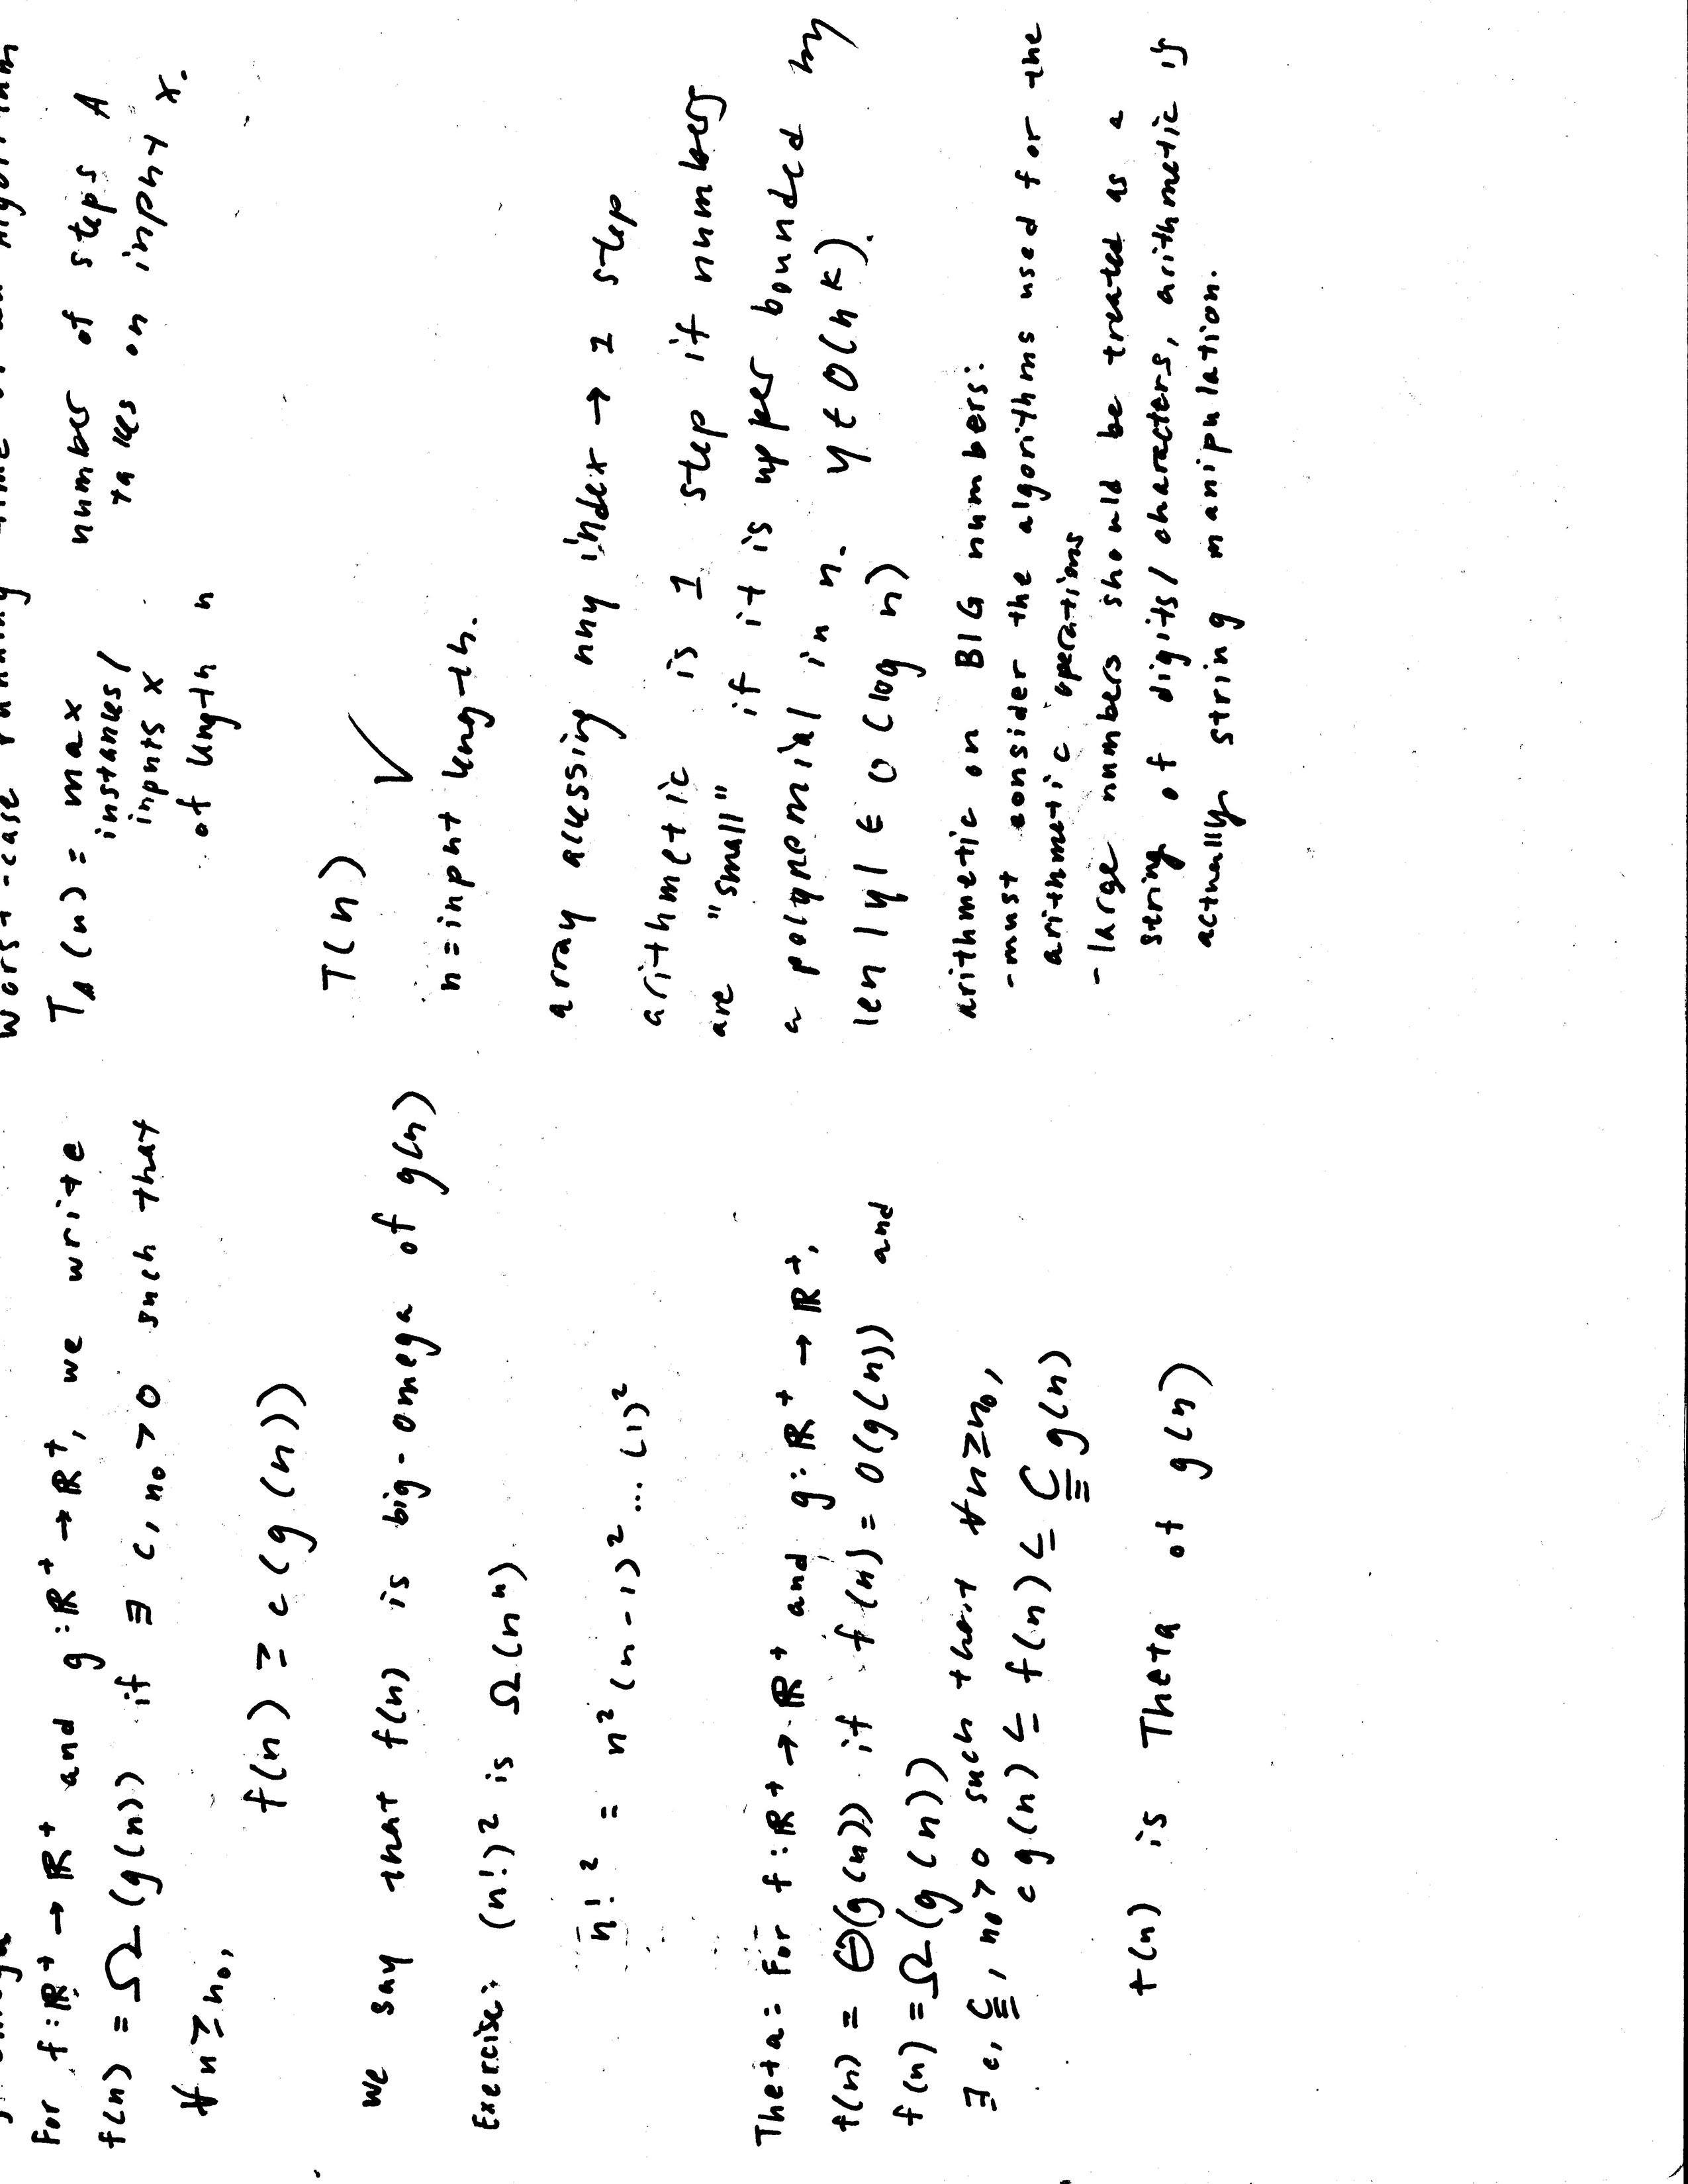 For f:ℝ⁺→ℝ⁺ and g:ℝ⁺→ℝ⁺, we write
f(n) = Ω(g(n)) if ∃ c, n₀ > 0 such that
∀n≥n₀,
f(n) ≥ c(g(n))
we say that f(n) is big-omega of g(n)
Exercise: (n!)² is Ω(nⁿ)
n!² = n²(n-1)²...(1)²
Theta: For f:ℝ⁺→ℝ⁺ and g:ℝ⁺→ℝ⁺,
f(n) = Θ(g(n)) if f(n) = O(g(n)) and
f(n) = Ω(g(n))
∃ c, C, n₀ > 0 such that ∀n≥n₀,
c g(n) ≤ f(n) ≤ C g(n)
f(n) is Theta of g(n)
worst-case running time
T_A(n) = max number of steps A
instances/ takes on input x.
inputs x
of length n
T(n)
n = input length.
array accessing any index → 1 step
arithmetic is 1 step if numbers
are "small" if it is upper bounded by
a polynomial in n. y ∈ O(n^k).
len |y| ∈ O(log n)
arithmetic on BIG numbers:
- must consider the algorithms used for the
arithmetic operations
- large numbers should be treated as a
string of digits/characters, arithmetic is
actually string manipulation.